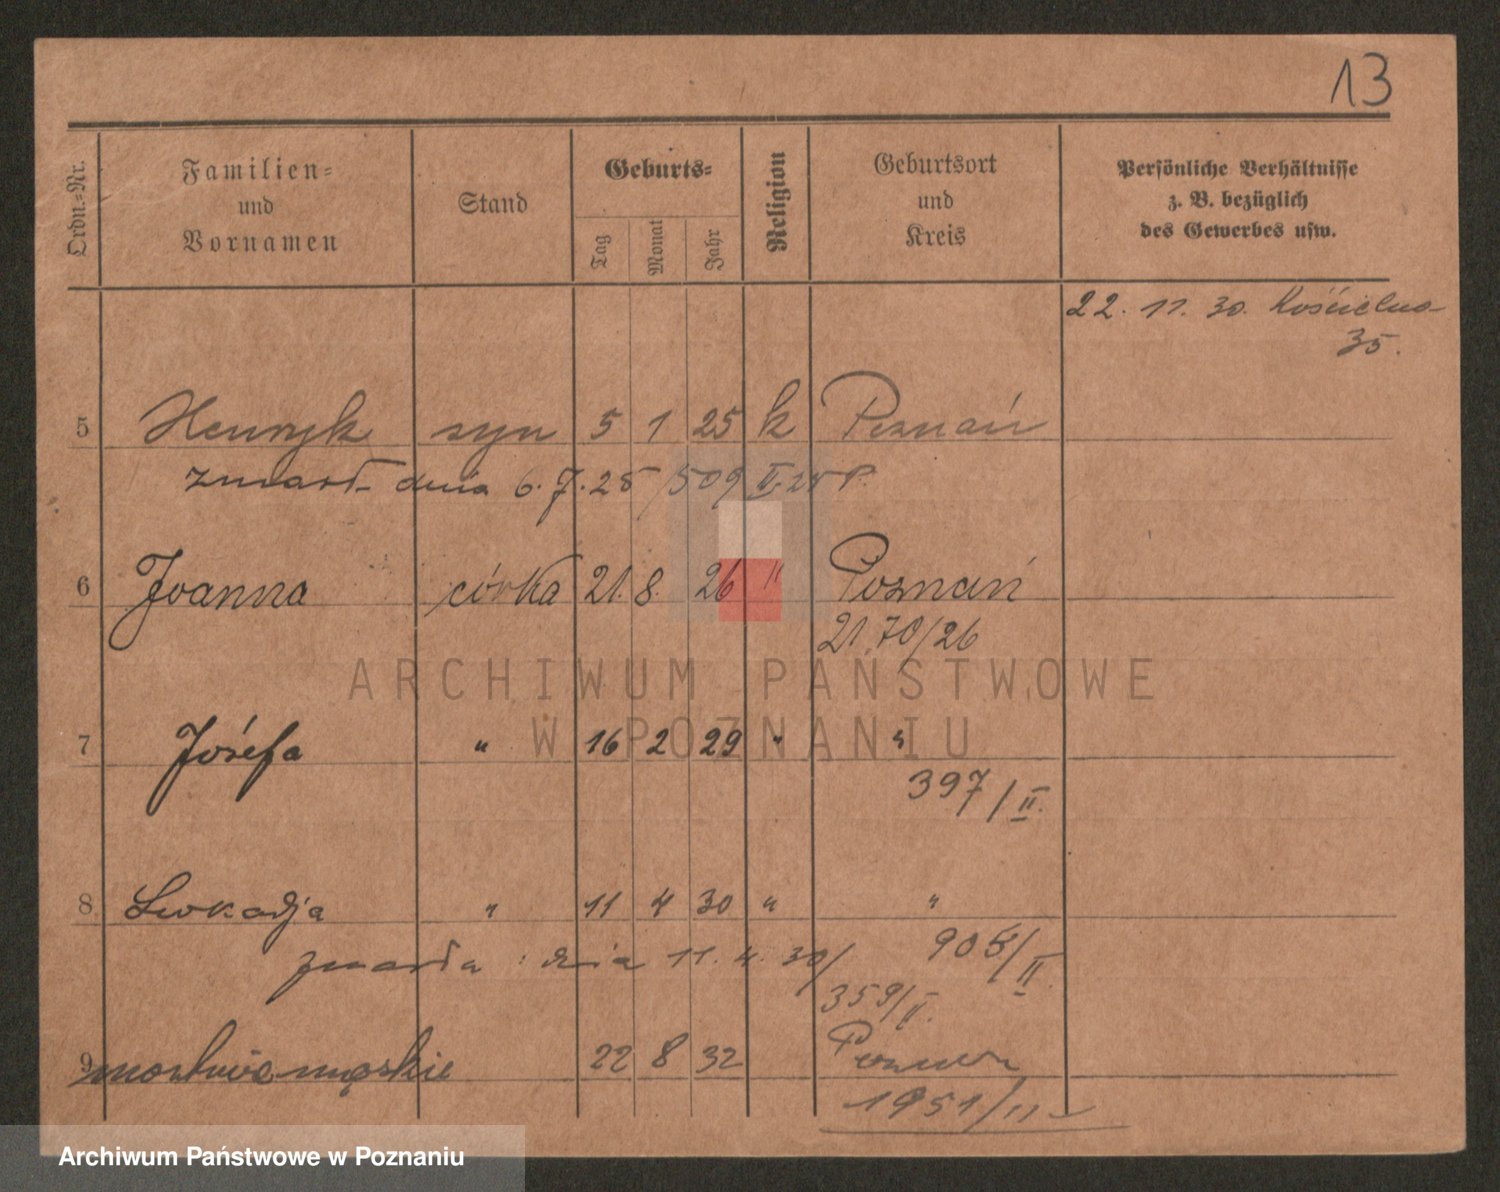 13
Ordn.-Nr.
Familien-
und
Vornamen
Stand
Geburts-
Tag
Monat
Jahr
Religion
Geburtsort
und
Kreis
Persönliche Verhältnisse
z. B. bezüglich
des Gewerbes usw.
22. 11. 30. Kościelna
35.
5 Henryk syn 5 1 25 k Poznań
zmarł dnia 6. 7. 25 /509 II 25 P.
6 Joanna córka 21. 8. 26 " Poznań
21.70/26
7 Józefa " 16 2 29 " "
397/II.
8 Leokadja " 11 4 30 " "
905/II.
zmarła dnia 11. 4. 30/
359/II.
9 martwe męskie 22 8 32 Poznań
1951/II
ARCHIWUM PAŃSTWOWE
W POZNANIU
Archiwum Państwowe w Poznaniu